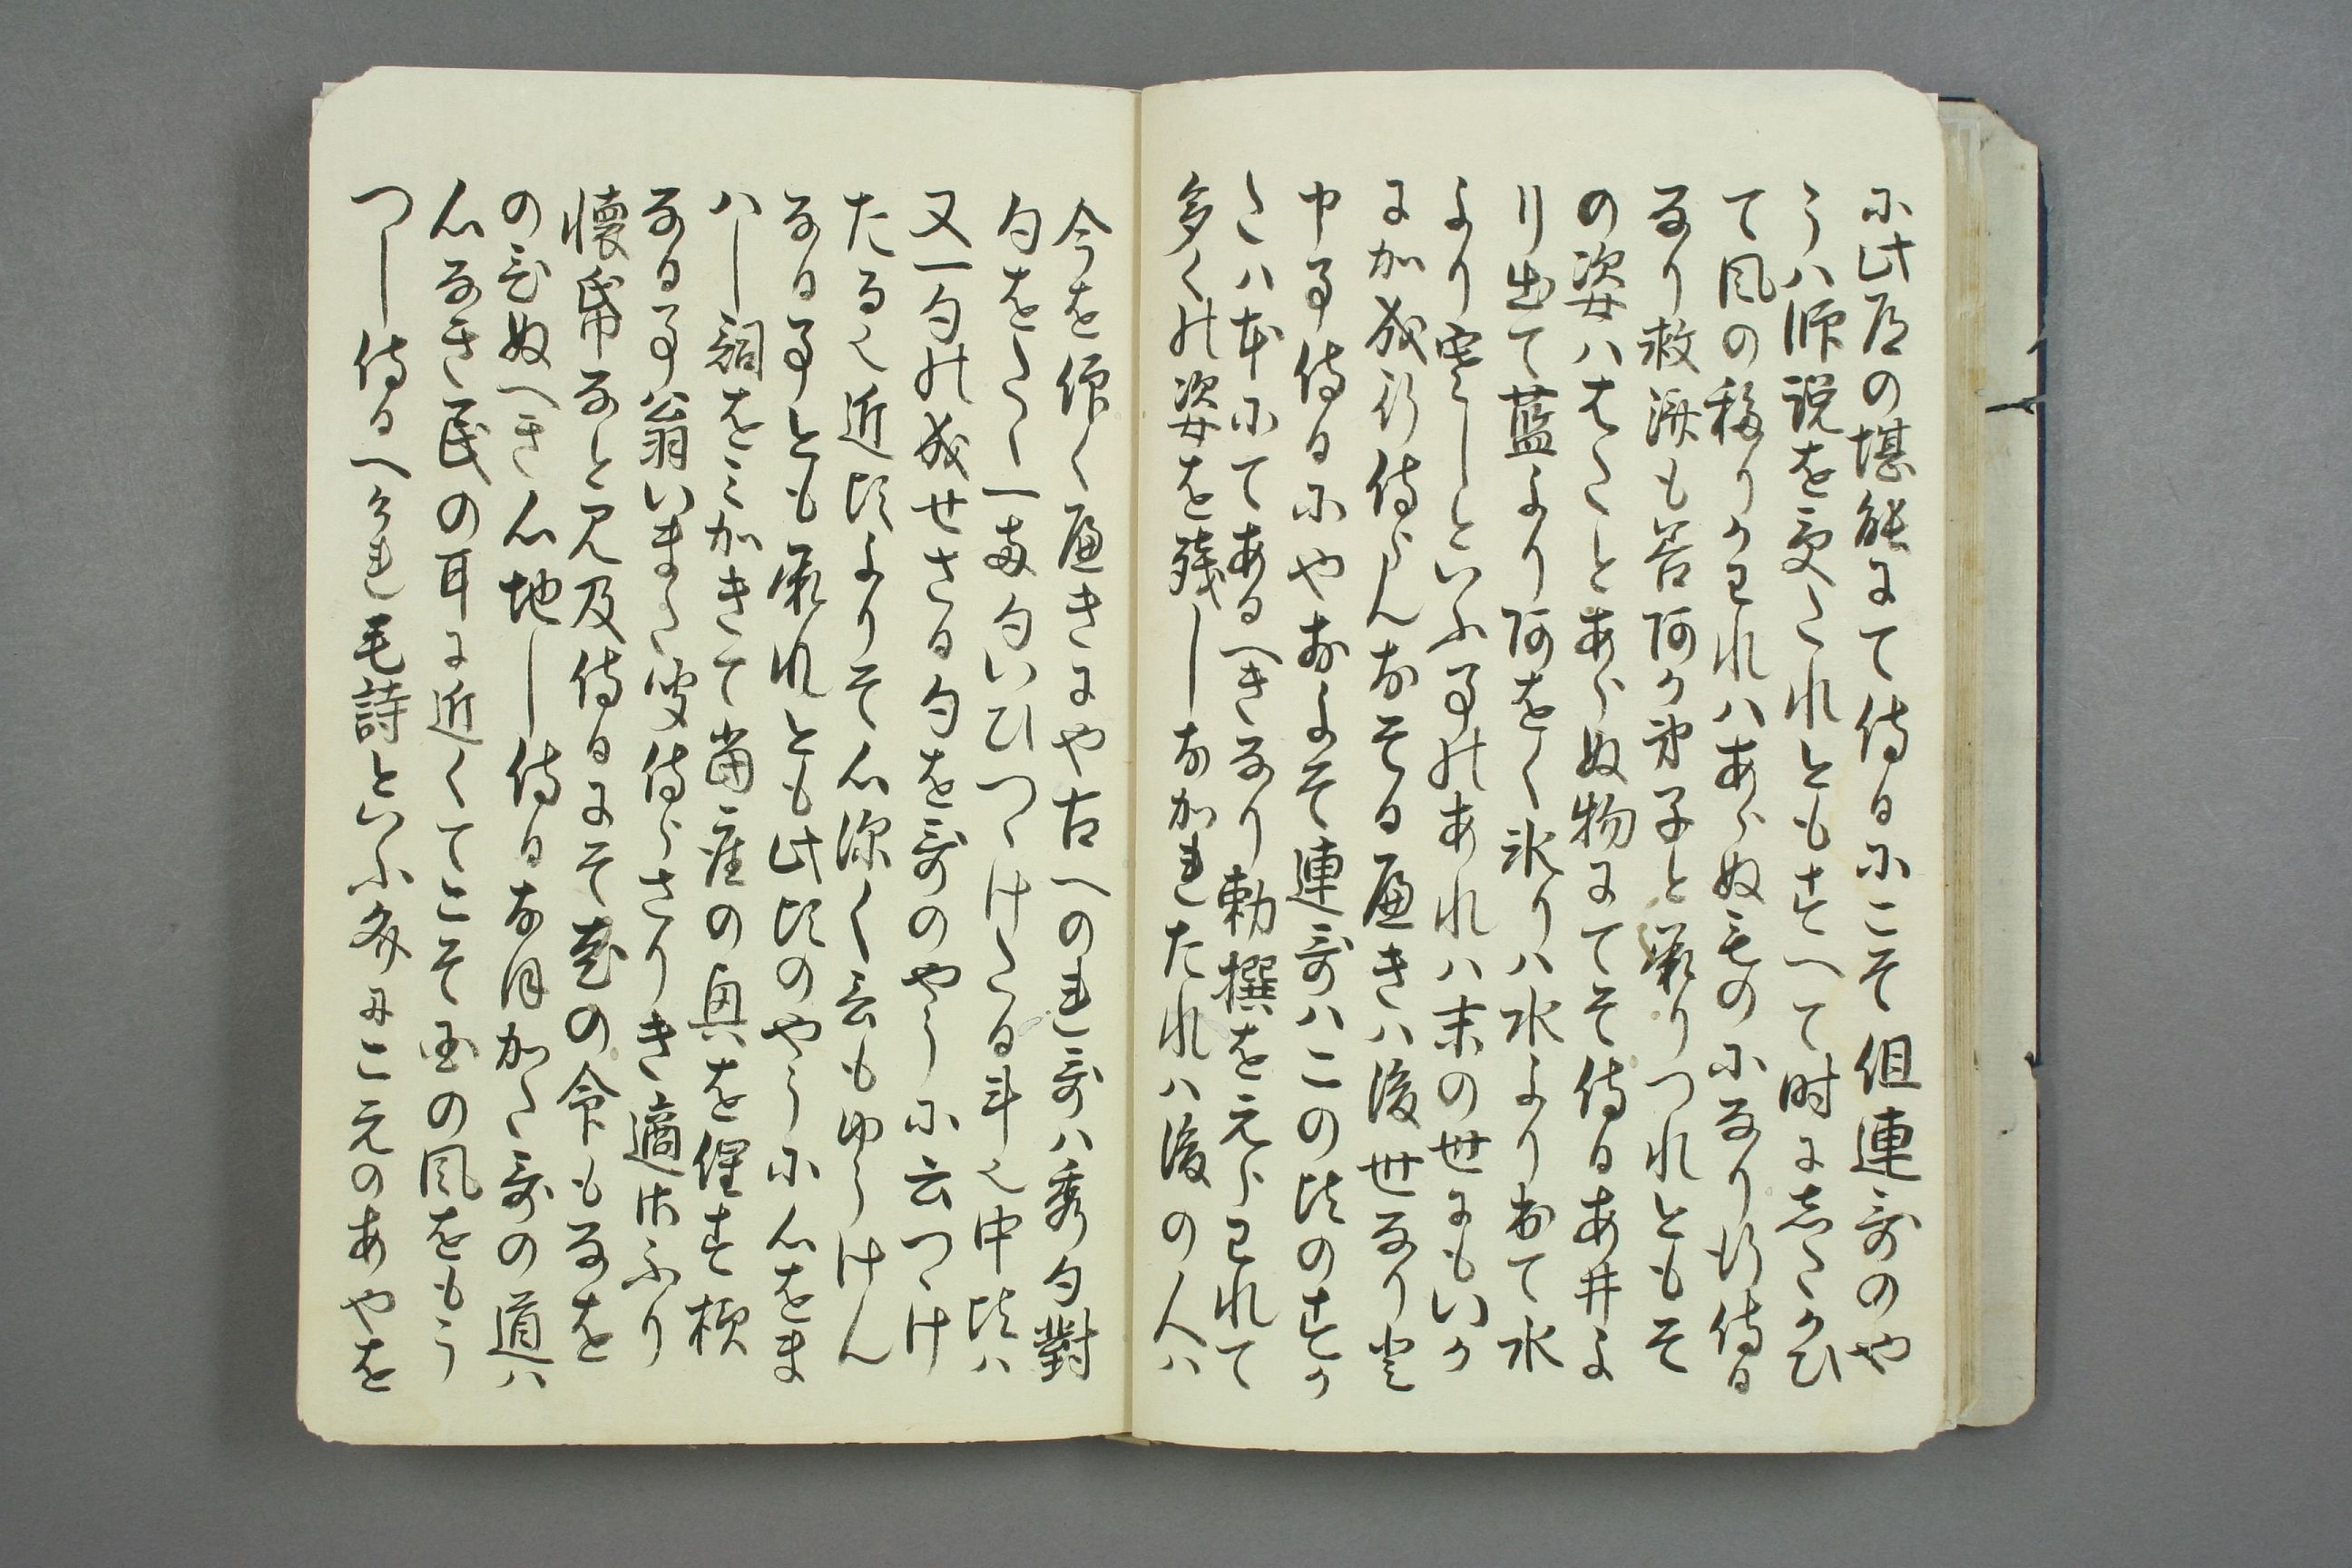 に此道の堪能にて侍るにこそ但連哥のや
うハ师説を受たれともすへて时にしたかひ
て風の移りかハれハあらぬものになり行侍る
なり救済も善阿か弟子と承りつれともそ
の姿ハはたとあらぬ物にてそ侍るあ井よ
り出て藍より阿をく氷りハ水よりおて水
より寒しといふ事のあれハ末の世にもいか
に成行侍らんおそる曲きハ後世なりと
申事侍るにやおよそ連哥ハこの比のすか
たハ本にてあるへきなり勅撰を元らはれて
多くの姿を残しおかれたれハ後の人ハ
今を仰く曲きにや古へのれ哥ハ秀句對
句をたく一両句いひつゝけたる斗也中比ハ
又一句の成せさる句を哥のやうに云つゝけ
たる也近比よりそ心深く云もゆうけん
なる事とも承れとも此比のやうに心をま
ハし詞をみかきて當座の興を催す様
なる事翁いまた承侍らさりき適古ふり
懐帋なと見及侍るにそ老の命もなを
のひぬへき心地し侍るなほかた哥の道ハ
心なき民の耳に近くてこそ国の風をもう
つし侍るへけれ毛詩といふ文にこゑのあやを